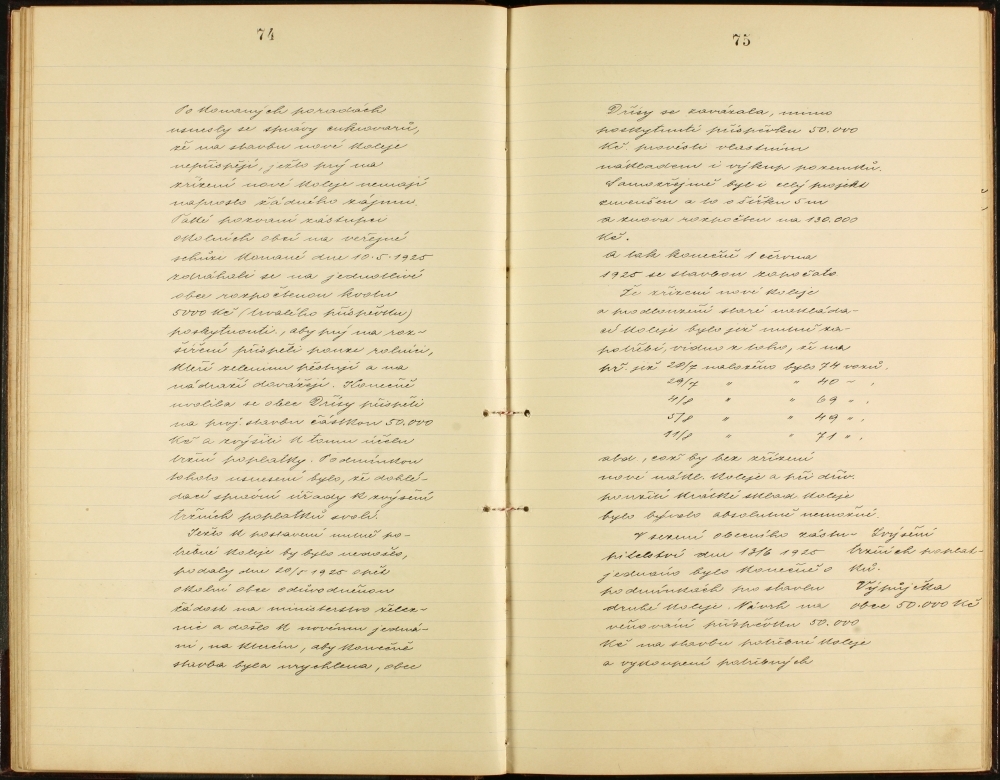 74
Po konaných poradách
usnesly se správy cukrovarů,
že na stavbu nové koleje
nepřispějí, ježto prý na
zřízení nové koleje nemají
naprosto žádného zájmu.
Také pozvaní zástupci
okolních obcí na veřejné
schůzi konané dne 10.5.1925
zdráhali se na jednotlivé
obce rozpočtenou kvotu
5000 Kč (trvalého příspěvku)
poskytnouti, aby prý na roz-
šíření přispěli pouze rolníci,
kteří zeleninu pěstují a na
nádraží dovážejí. Konečně
uvolila se obec Dřísy přispěti
na proj. stavbu částkou 50.000
Kč a zvýšiti k tomu účelu
tržní poplatky. Podmínkou
tohoto usnesení bylo, že dohlé-
dací správní úřady k zvýšení
tržních poplatků svolí.
Ježto k postavení nutně po-
třebné koleje by bylo nedošlo,
podaly dne 20/5 1925 opět
okolní obce odůvodněnou
žádost na ministerstvo želez-
nic a došlo k novému jedná-
ní, na kterém, aby konečně
stavba byla urychlena, obec
75
Dřísy se zavázala, mimo
poskytnutí příspěvku 50.000
Kč. provésti vlastním
nákladem i výkup pozemků.
Samozřejmě byl i celý projekt
zmenšen a to o šířku 5 m
a znova rozpočten na 130.000
Kč.
A tak konečně 1 června
1925 se stavbou započato.
Že zřízení nové koleje
a prodloužení staré nakláda-
cí koleje bylo již nutně za-
potřebí, vidno z toho, že na
př. již 28/7 naloženo bylo 74 vozů.
29/7 " " 40 " .
4/8 " " 69 " .
5/8 " " 49 " .
11/8 " " 71 " .
atd, což by bez zřízení
nové nákl. koleje a při dřív.
použití krátké sklad. koleje
bylo bývalo absolutně nemožné.
V sezení obecního zastu-
pitelstva dne 13/6 1925
jednáno bylo konečně o
podmínkách pro stavbu
druhé koleje. Návrh na
věnování příspěvku 50.000
Kč na stavbu potřebné koleje
a vykoupení potřebných
Zvýšení
tržních poplat-
ků.
Výpůjčka
obce 50.000 Kč